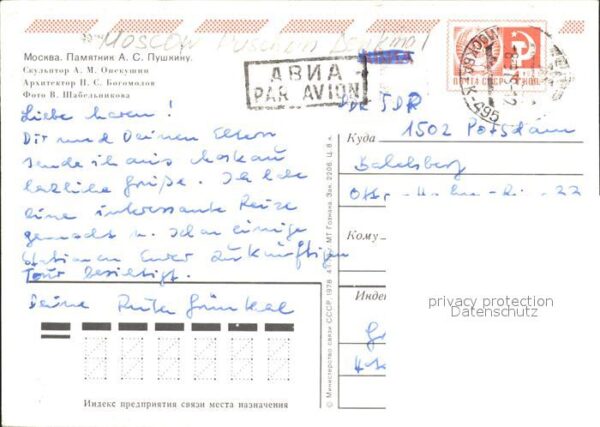 Moscow Puschkin Denkmal
Москва. Памятник А. С. Пушкину.
Скульптор А. М. Опекушин
Архитектор И. С. Богомолов
Фото В. Шабельникова
АВИА
PAR AVION
ПОЧТА СССР
МОСКВА К-495
DDR
1502 Potsdam
Куда
Babelsberg
22
Кому
Liebe Karen!
Dir und Deinen Eltern
sende ich aus Moskau
herzliche Grüße. Ich habe
eine interessante Reise
gemacht u. schon einige
Stationen Eurer zukünftigen
Tour besichtigt.
Deine
© Министерство связи СССР, 1978. МТ Гознака. Зак. 2206. Ц. 8 к.
Индекс предприятия связи места назначения
privacy protection
Datenschutz